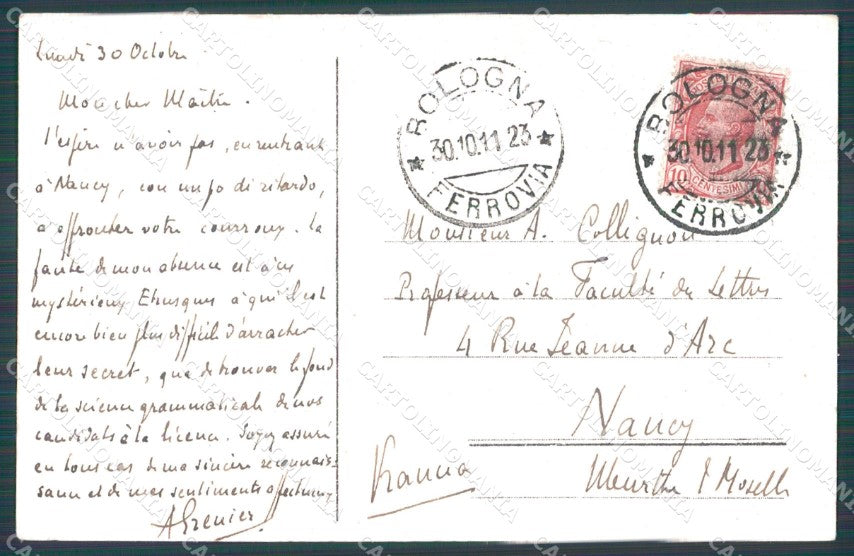 Lundi 30 Octobre
Mon cher Maître.
J'espère n'avoir pas, en rentrant
à Nancy, con un po di ritardo,
à affronter votre courroux. La
faute de mon absence est à ces
mystérieux Etrusques à qui il est
encor bien plus difficile d'arracher
leur secret, que de trouver le fond
de la science grammaticale de nos
candidats à la licence. Soyez assuré
en tous cas de ma sincère reconnais-
sance et de mes sentiments affectueux
AGrenier
BOLOGNA
30.10.11 23
FERROVIA
BOLOGNA
30.10.11 23
FERROVIA
10 CENTESIMI
Monsieur A. Collignon
Professeur à la Faculté des Lettres
4 Rue Jeanne d'Arc
Nancy
Meurthe & Moselle
Francia
CARTOLINOMANIA